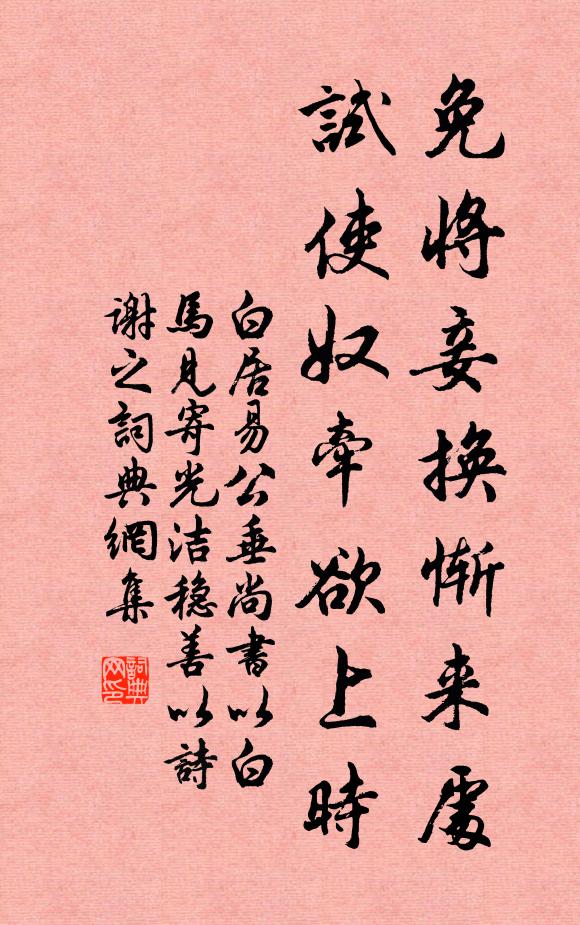 免將妾換慚来處
試使奴牽欲上時
白居易公垂尚書以白
馬見寄光洁穏善以詩
謝之詞典網集
詞典网印